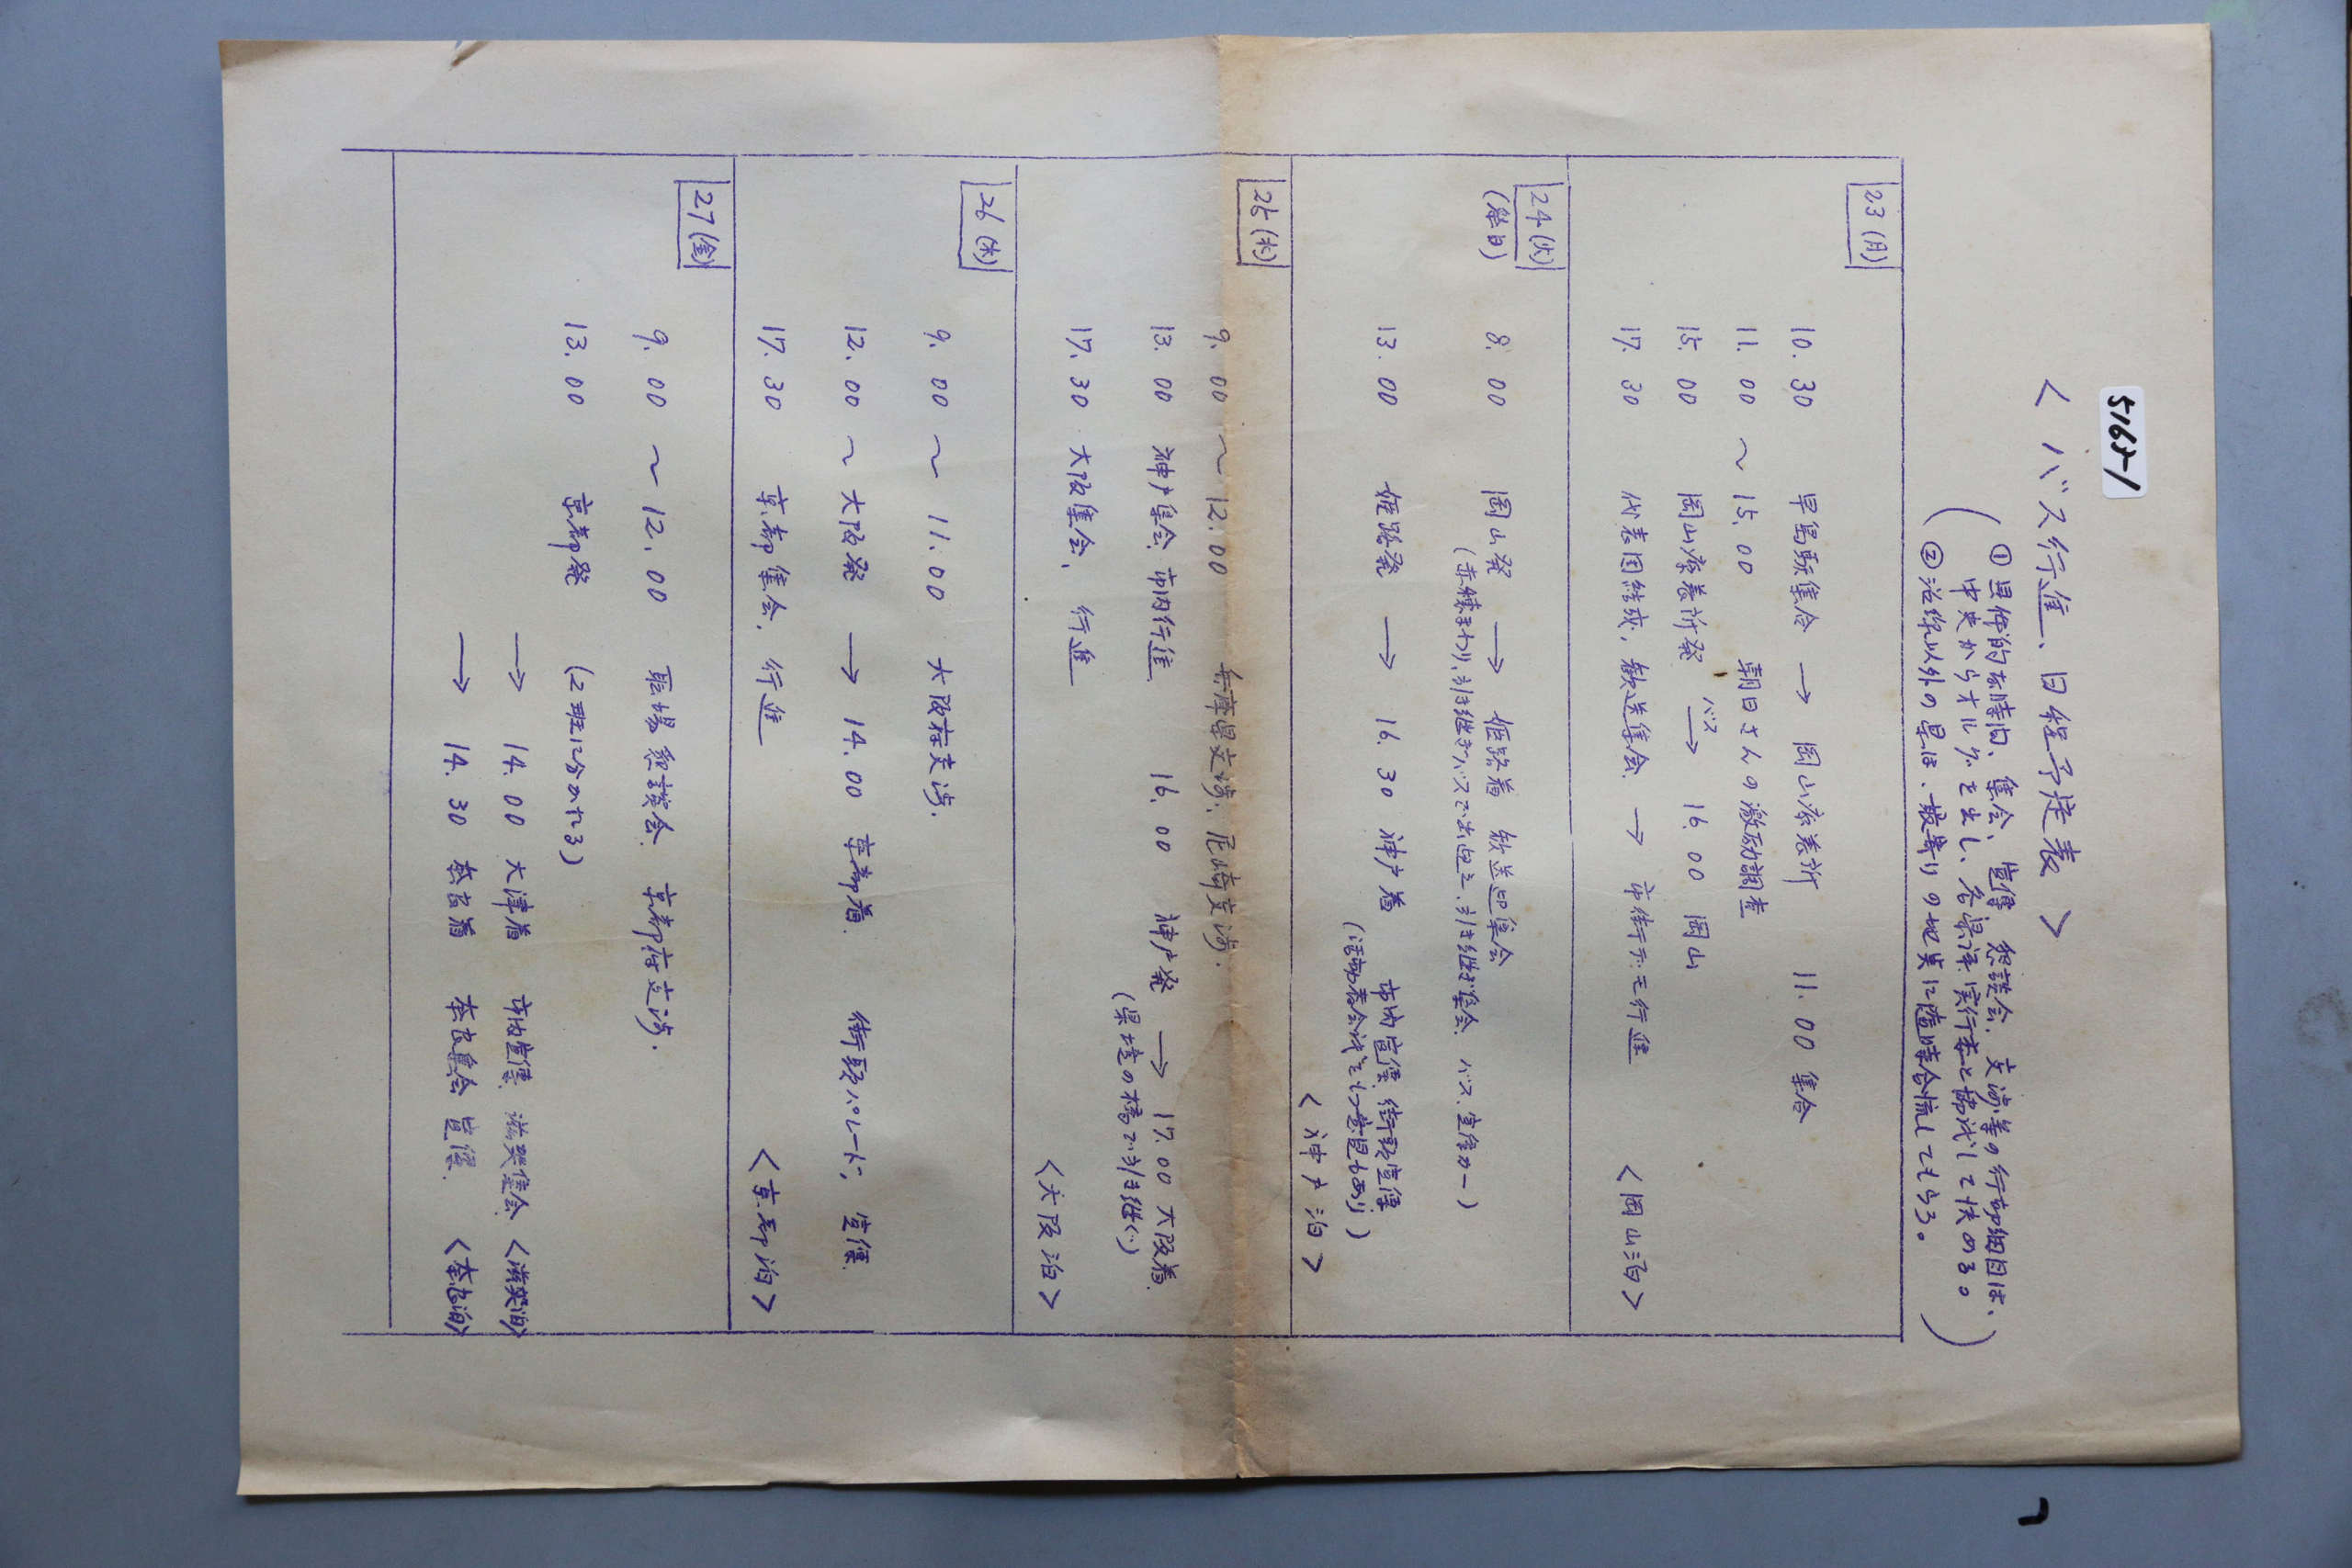 5165-1
< バス行進、日程予定表 >
① 具体的な時間、集会、宣傳、懇談会、交渉等の行動細目は、
中央からオルグを出し、各県実行委と協議して決める。
② 沿線以外の県は、最寄りの地点に随時合流してもらう。
23 (月)
10.30 早島駅集合 → 岡山療養所 11.00 集会
11.00 〜 15.00 朝日さんの激励調査
15.00 岡山療養所発 バス → 16.00 岡山
17.30 代表団結成、歓送集会 → 市街デモ行進 <岡山泊>
24 (火)
(祭日)
8.00 岡山発 → 姫路着 歓送迎集会
(赤穂まわり、引き継ぎバスで出迎え、引き継ぎ集会、バス、宣傳カー)
13.00 姫路発 → 16.30 神戸着 市内宣傳、街頭宣傳
(活動者会議という意見もあり)
<神戸泊>
25 (水)
9.00 〜 12.00 兵庫県交渉、尼崎交渉.
13.00 神戸集会、市内行進 16.00 神戸発 → 17.00 大阪着
(県境の橋で引き継ぐ)
17.30 大阪集会、行進 <大阪泊>
26 (木)
9.00 〜 11.00 大阪府交渉.
12.00 〜 大阪発 → 14.00 京都着 街頭パレード、宣傳
17.30 京都集会、行進 <京都泊>
27 (金)
9.00 〜 12.00 職場懇談会 京都府交渉.
13.00 京都発 (2班に分かれる)
→ 14.00 大津着 市内宣傳 滋賀集会 <滋賀泊>
→ 14.30 奈良着 奈良集会 宣傳 <奈良泊>